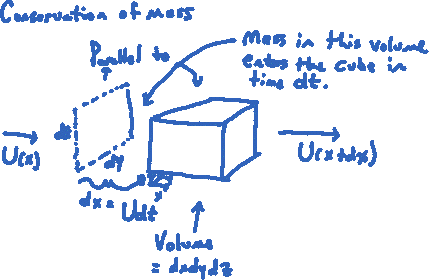 Conservation of mass
Parallel to
Mass in this volume
enters the cube in
time dt.
dz
U(x)
dy
U(x+dx)
dx = Udt
Volume
= dxdydz